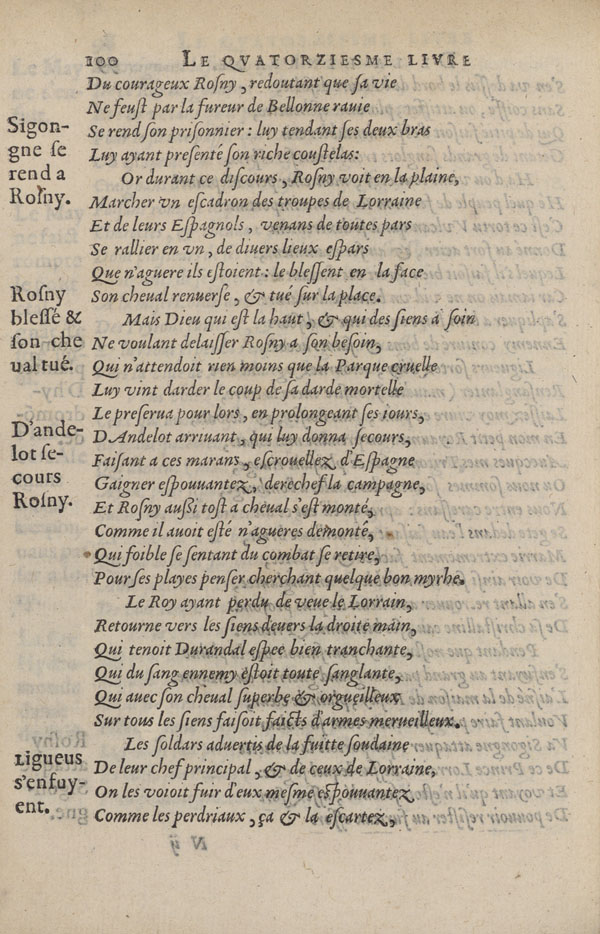 100 LE QVATORZIESME LIVRE
Du courageux Roſny, redoutant que ſa vie
Ne feuſt par la fureur de Bellonne rauie
Sigon-
gne ſe
rend a
Roſny.
Se rend ſon priſonnier: luy tendant ſes deux bras
Luy ayant preſenté ſon riche couſtelas:
Or durant ce diſcours, Roſny voit en la plaine,
Marcher vn eſcadron des troupes de Lorraine
Et de leurs Eſpagnols, venans de toutes pars
Se rallier en vn, de diuers lieux eſpars
Que n'aguere ils eſtoient: le bleſſent en la face
Roſny
bleſſé &
ſon che
ual tué.
Son cheual renuerſe, & tué ſur la place.
Mais Dieu qui eſt la haut, & qui des ſiens á ſoin
Ne voulant delaiſſer Roſny a ſon beſoin,
Qui n'attendoit rien moins que la Parque cruelle
Luy vint darder le coup de ſa darde mortelle
Le preſerua pour lors, en prolongeant ſes iours,
D'ande-
lot ſe-
cours
Roſny.
D'Andelot arriuant, qui luy donna ſecours,
Faiſant a ces marans, eſcrouellez d'Eſpagne
Gaigner eſpouuantez, derechef la campagne,
Et Roſny auſſi toſt a cheual s'eſt monté,
Comme il auoit eſté n'agueres démonté,
Qui foible ſe ſentant du combat ſe retire,
Pour ſes playes penſer cherchant quelque bon myrhe.
Le Roy ayant perdu de veue le Lorrain,
Retourne vers les ſiens deuers la droite main,
Qui tenoit Durandal eſpee bien tranchante,
Qui du ſang ennemy eſtoit toute ſanglante,
Qui auec ſon cheual ſuperbe & orgueilleux
Sur tous les ſiens faiſoit faicts d'armes merueilleux.
Les ſoldars aduertis de la fuitte ſoudaine
Ligueus
s'enfuy-
ent.
De leur chef principal, & de ceux de Lorraine,
On les voioit fuir d'eux meſme eſpouuantez
Comme les perdriaux, ça & la eſcartez,